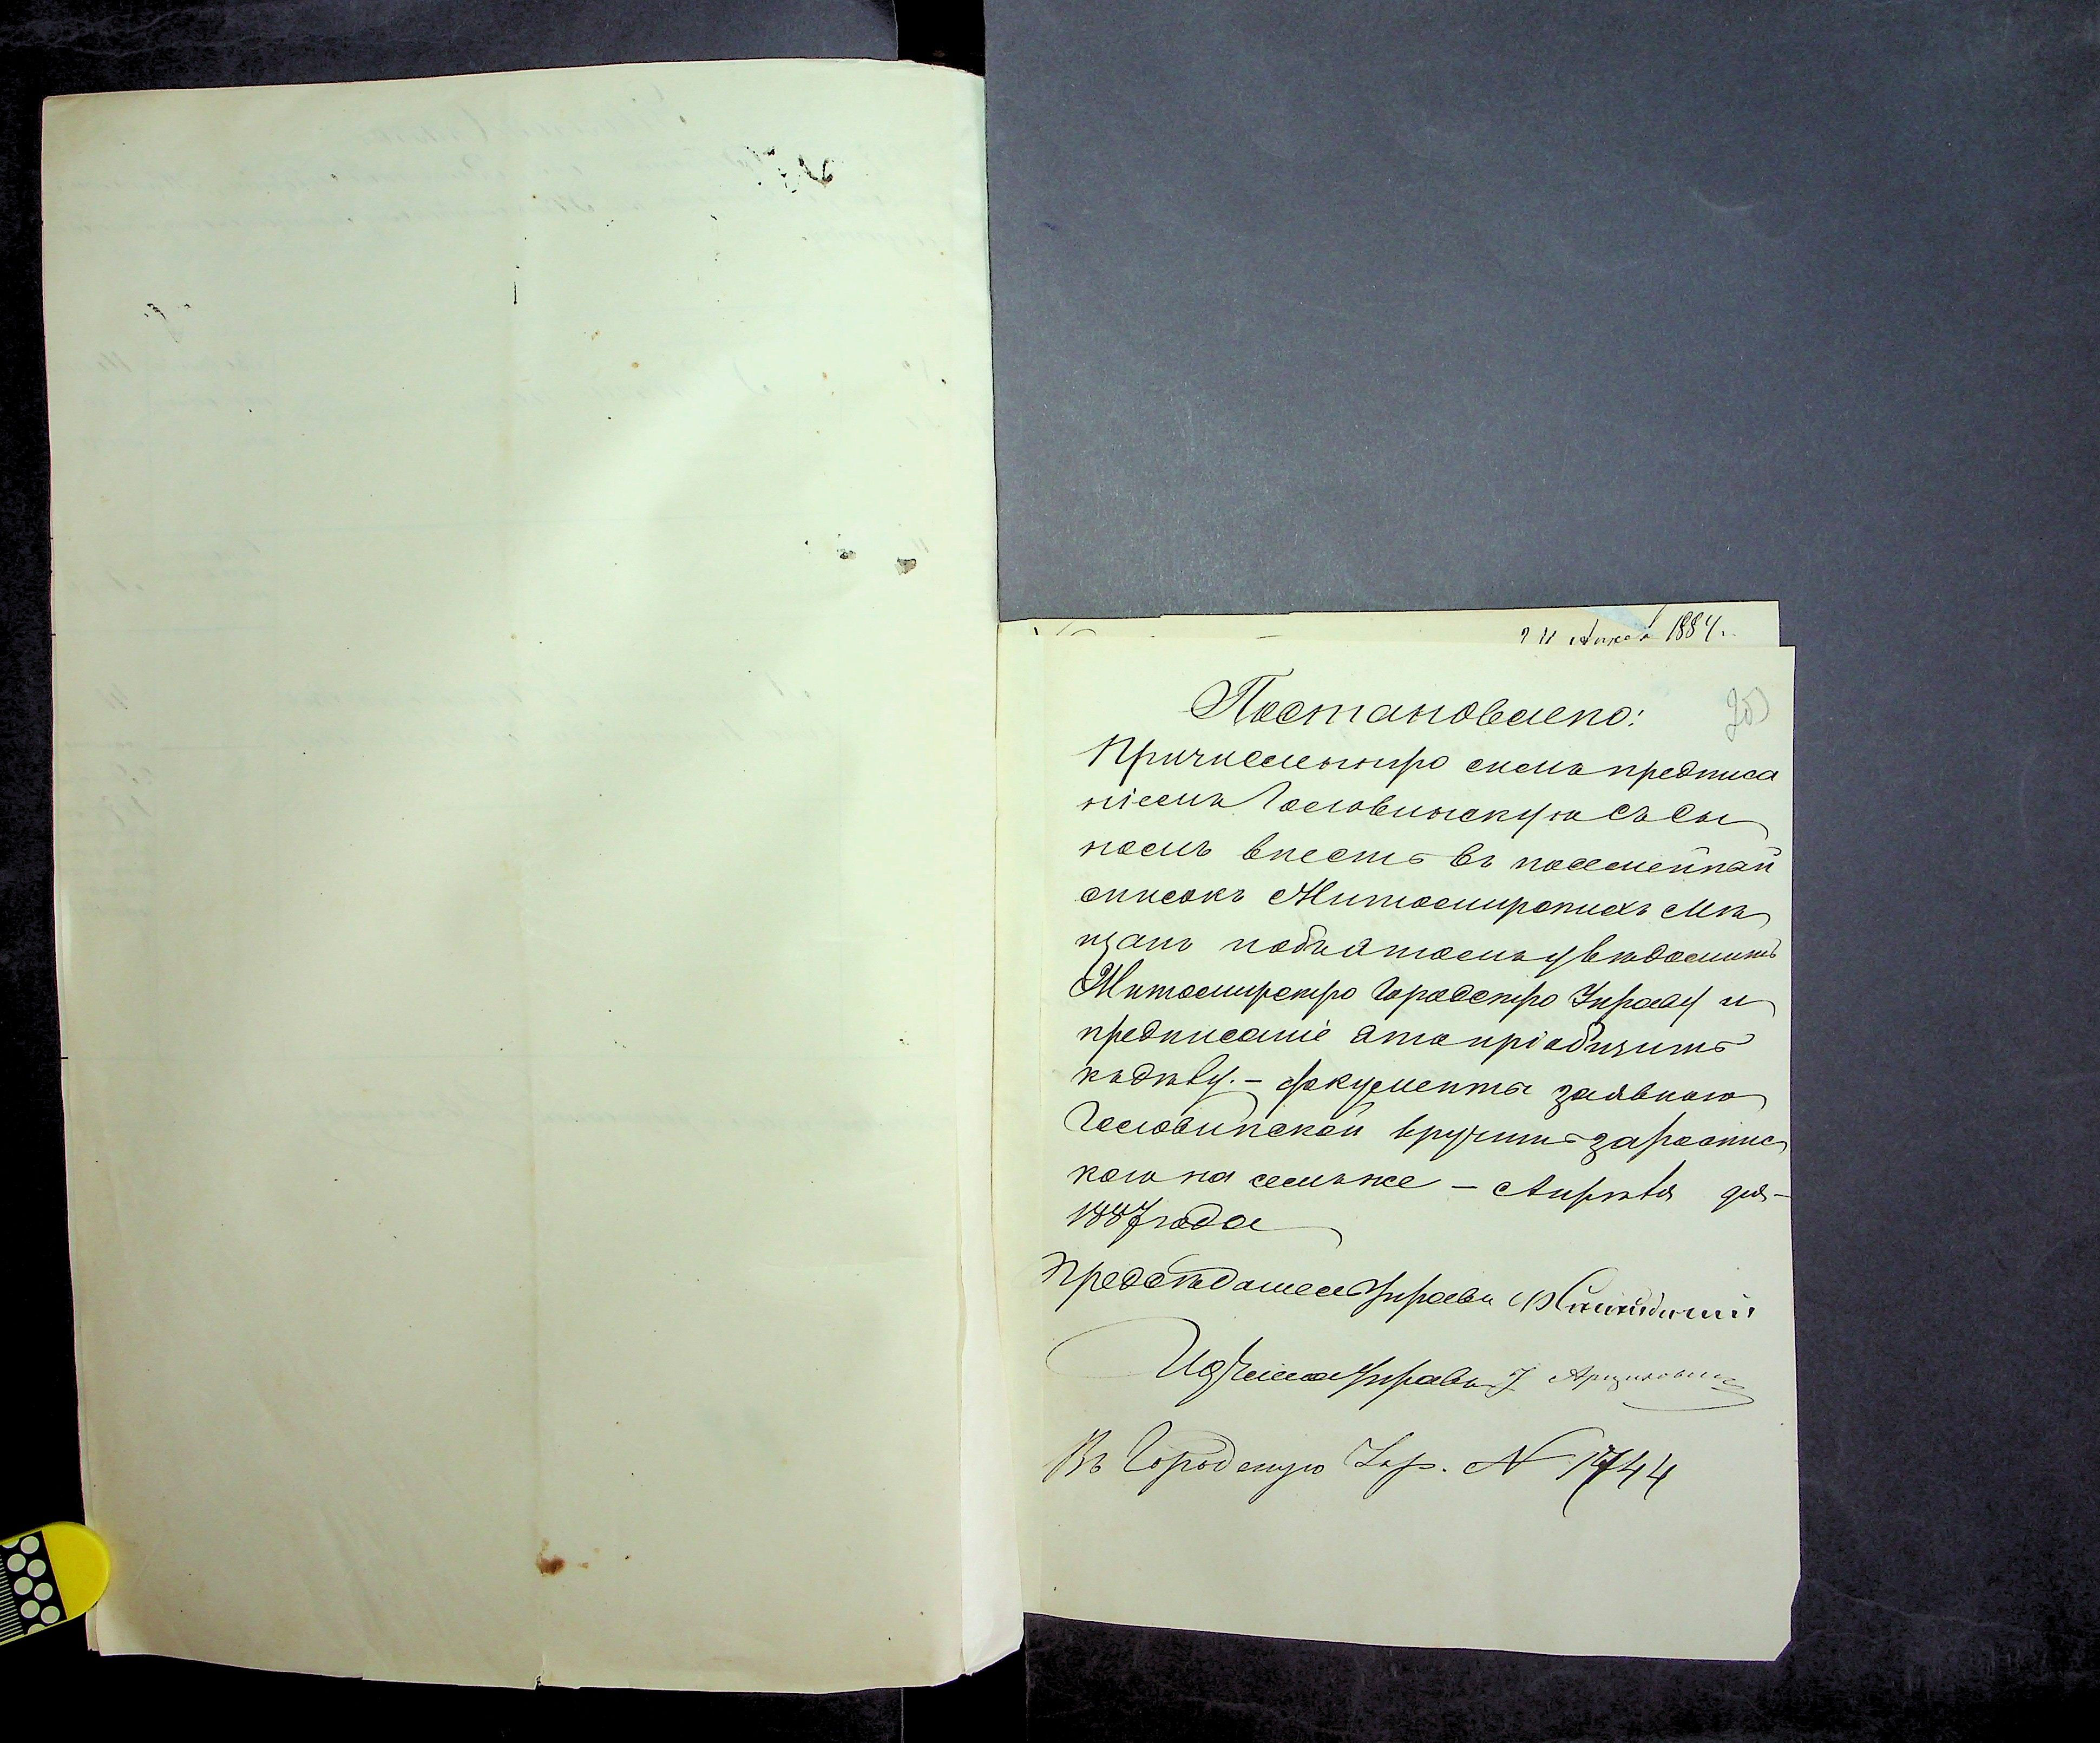 Апреля 1884.
25
Постановлено:
Причисленную симъ предписа
ніемъ Головинскую съ сы
номъ внести въ посемейный
списокъ Житомирскихъ мѣ
щанъ объ этомъ увѣдомить
Житомирскую Городскую Управу и
предписаніе это пріобщить
къ дѣлу. – Документы
Головинской вручить за роспис
кою на семъ же – Апрѣля дня –
1887 года
Предсѣдатель Управы
Члена Управы
Въ Городскую Упр. N 1744